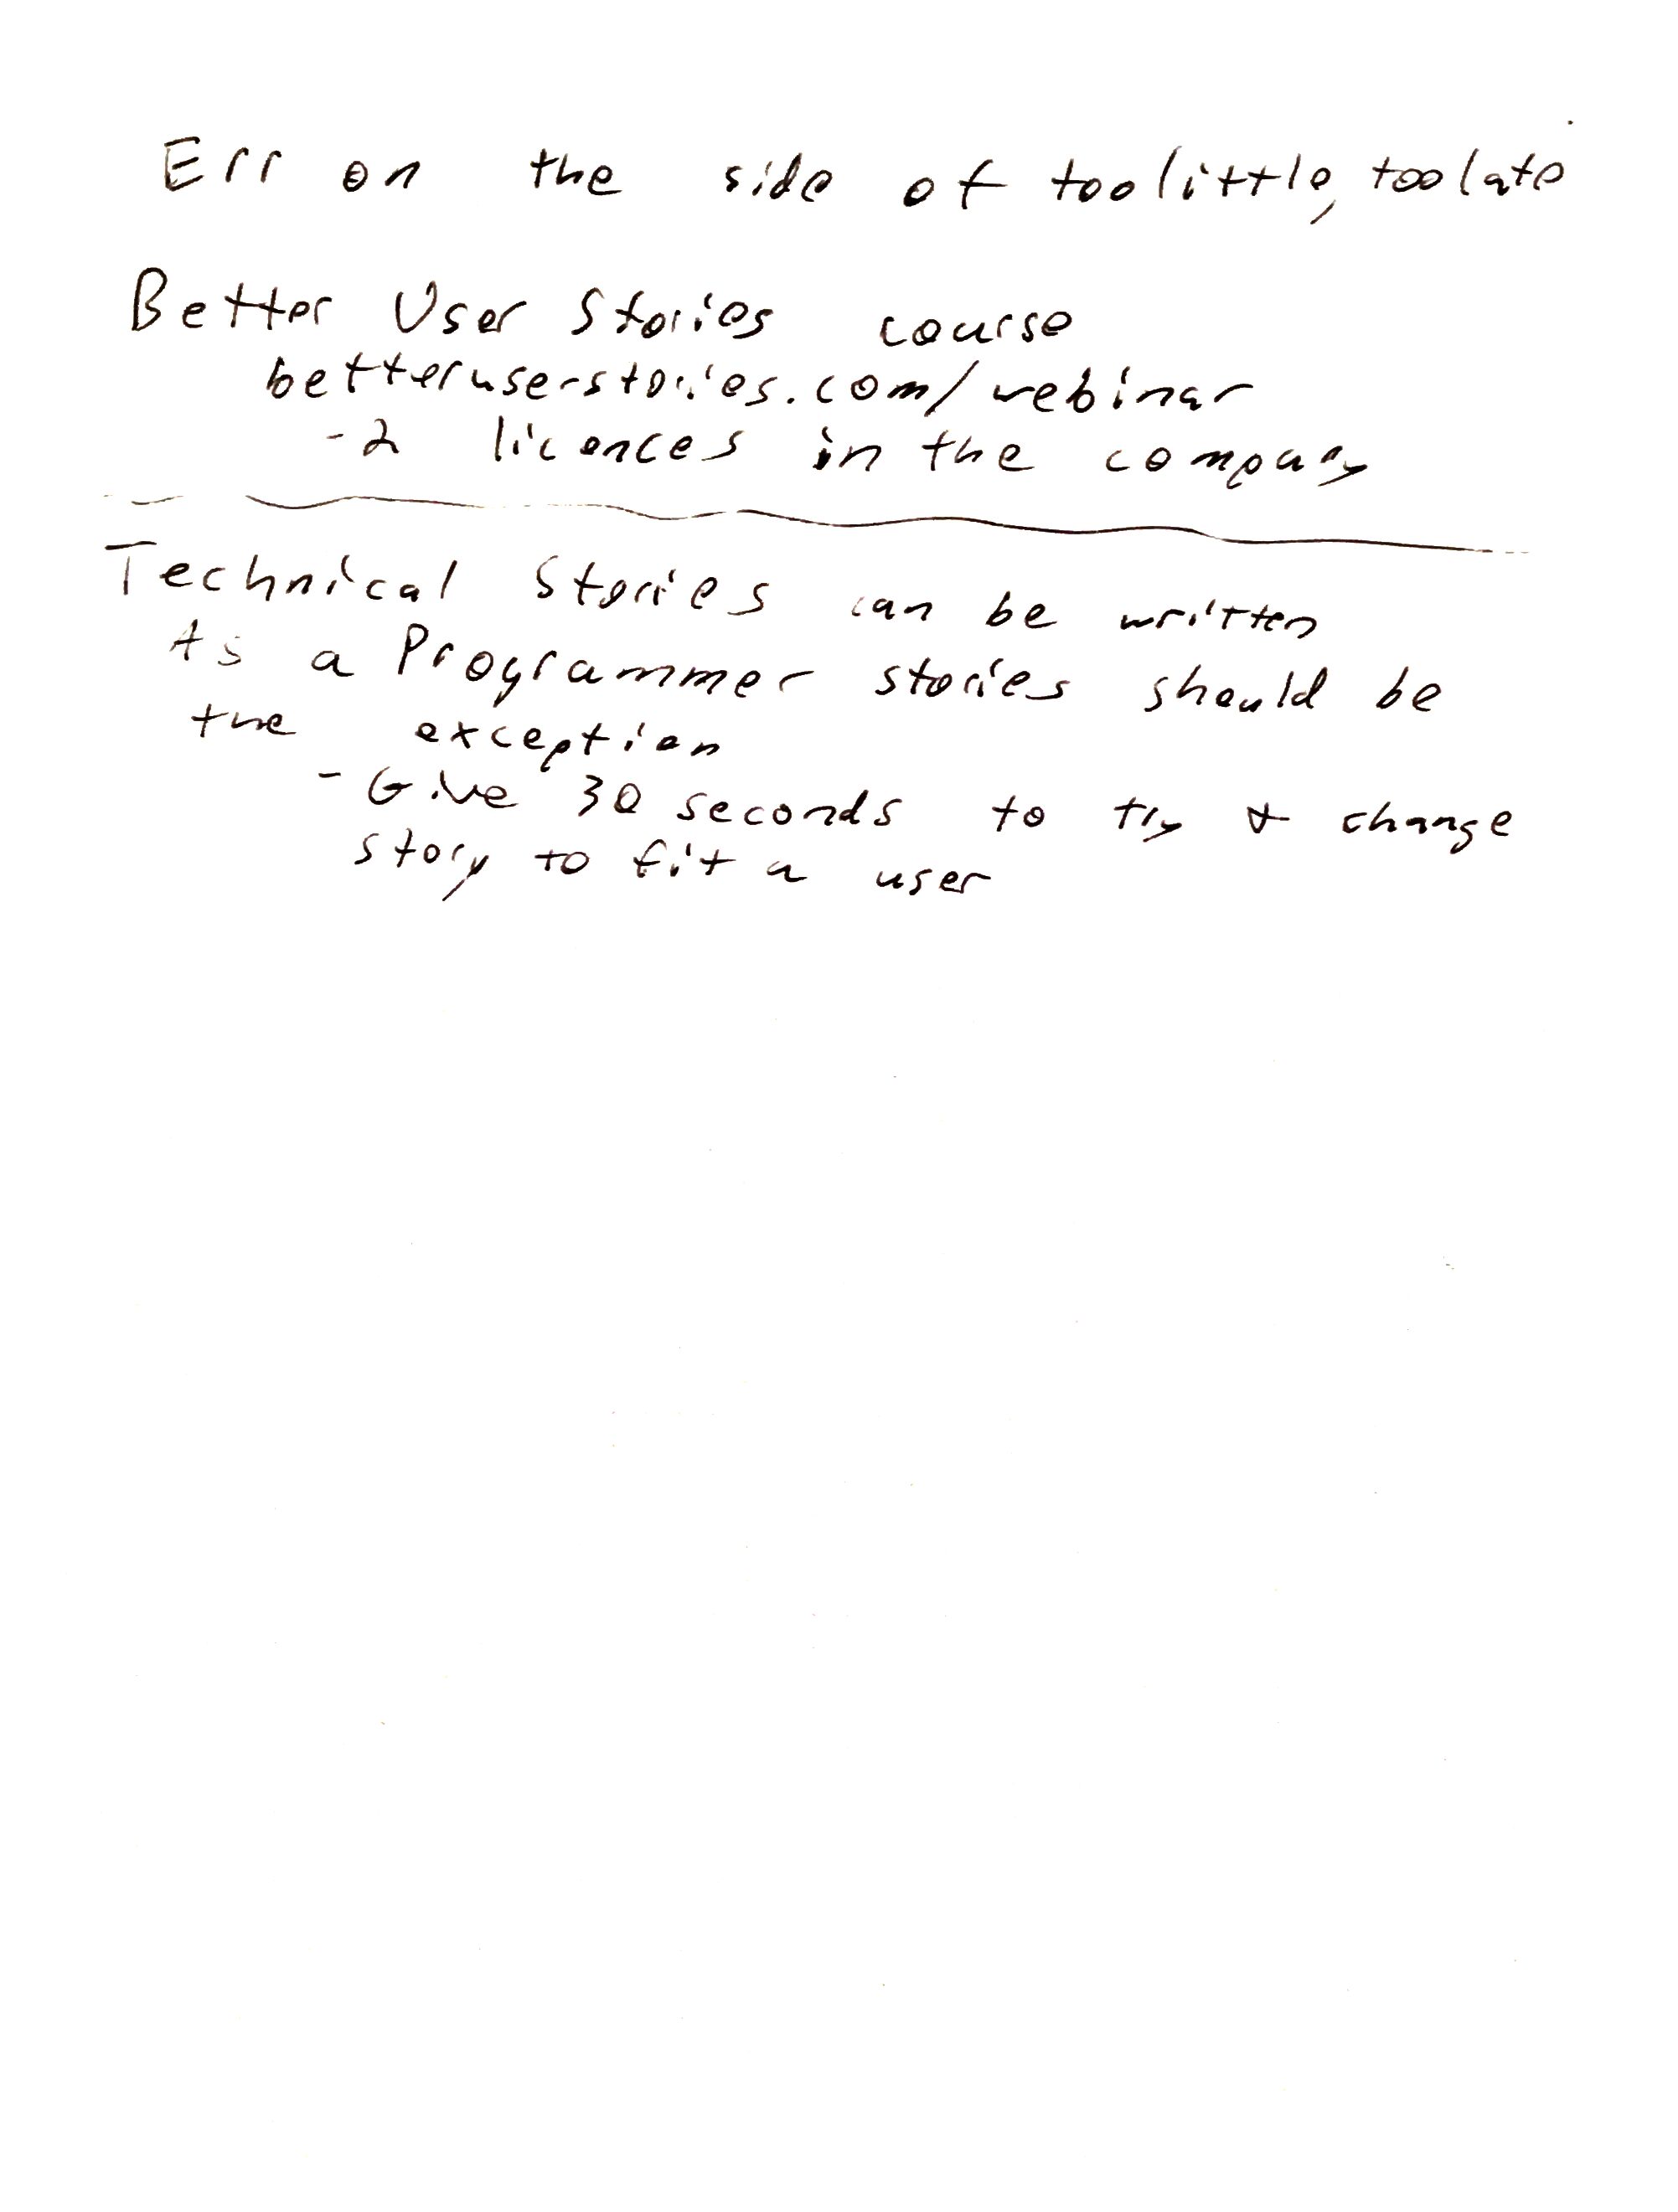 Err on the side of too little, too late
Better User Stories course
betteruserstories.com/webinar
-2 licences in the company
Technical Stories can be written
As a Programmer stories should be
the exception
- Give 30 seconds to try & change
story to fit a user